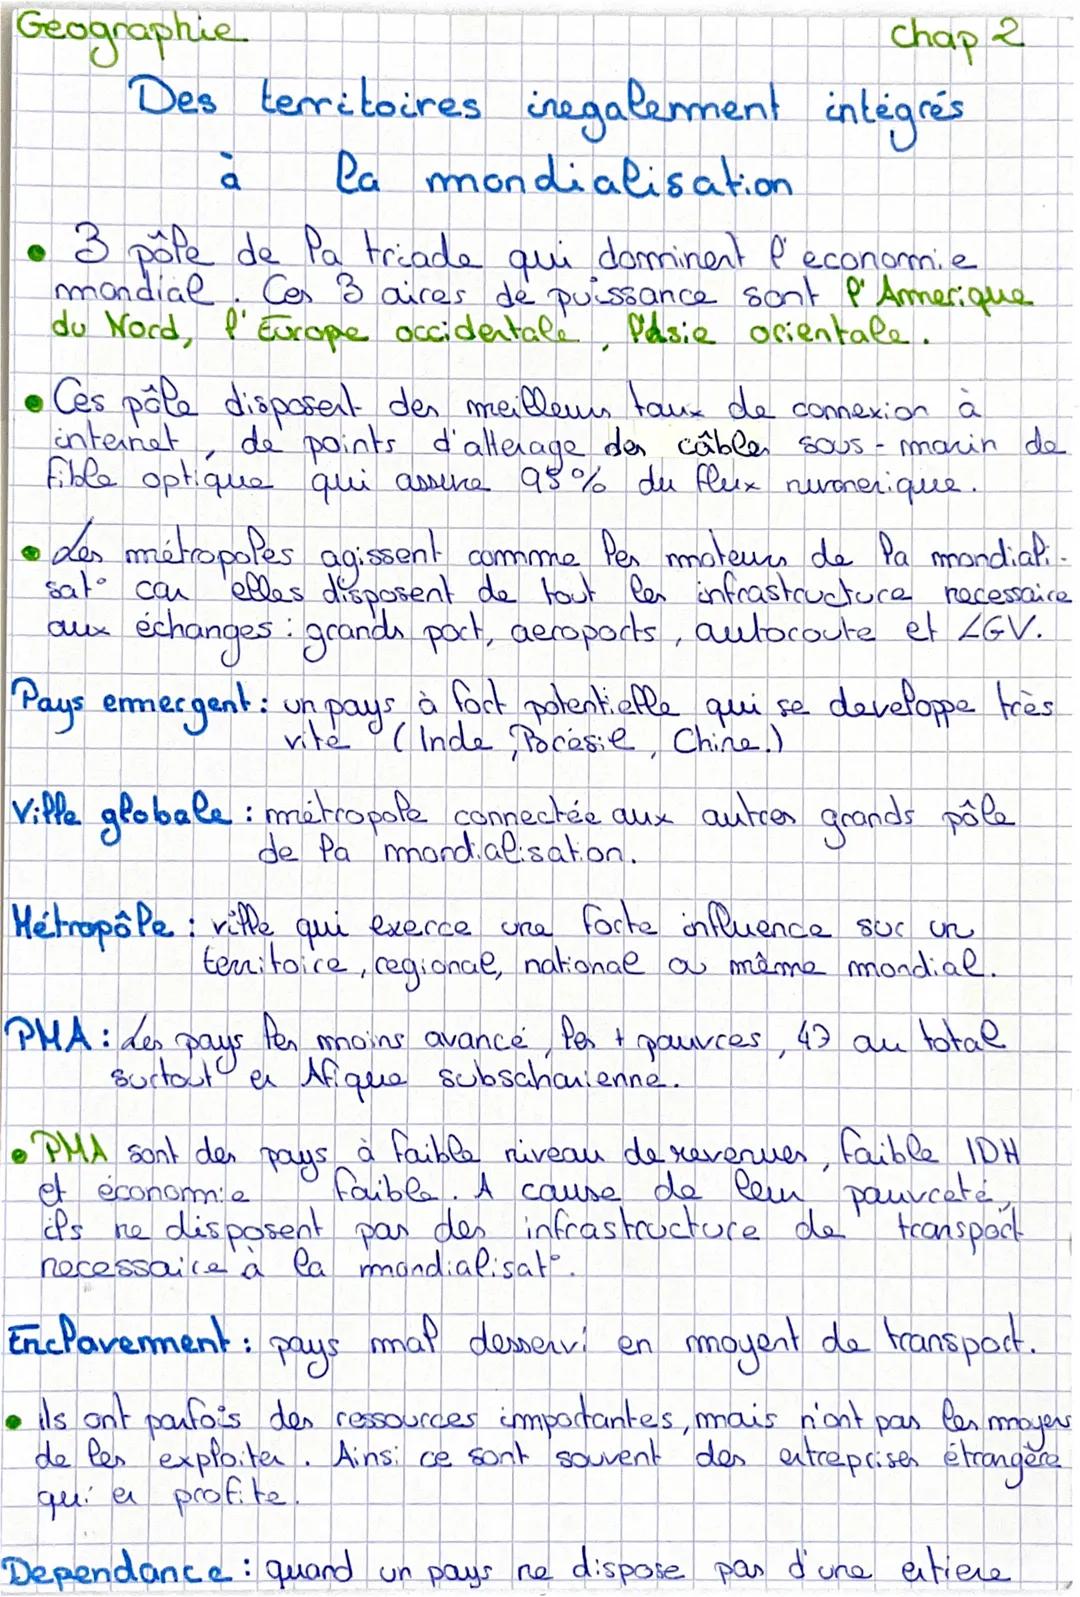 Geographie chap 2
Des territoires inegalement intégrés
à la mondialisation
• 3 pôle de la triade qui dominent l'economie
mondial. Ces 3 aires de puissance sont l'Amerique
du Nord, l'Europe occidentale, l'Asie orientale.
• Ces pôle disposent des meilleurs taux de connexion à
internet, de points d'atterage des câbles sous-marin de
fible optique qui assure 95% du flux numerique.
• Les métropoles agissent comme les moteurs de la mondiali-
sat° car elles disposent de tout les infrastructure necessaire
aux échanges : grands port, aeroports, autoroute et LGV.
Pays emergent : un pays à fort potentielle qui se developpe très
vite (Inde, Brésil, Chine.)
Ville globale : métropole connectée aux autres grands pôle
de la mondialisation.
Métropôle : ville qui exerce une forte influence sur un
territoire, regional, national ou même mondial.
PMA : Les pays les moins avancé, les + pauvres, 47 au total
surtout en Afique subsaharienne.
• PMA sont des pays à faible niveau de revenues, faible IDH
et économie faible. A cause de leur pauvreté,
ils ne disposent pas des infrastructure de transport
necessaire à la mondialisat°.
Enclavement : pays mal desservi en moyent de transport.
• ils ont parfois des ressources importantes, mais n'ont pas les moyens
de les exploiter. Ainsi ce sont souvent des entreprises étrangère
qui en profite.
Dependance : quand un pays ne dispose pas d'une entiere